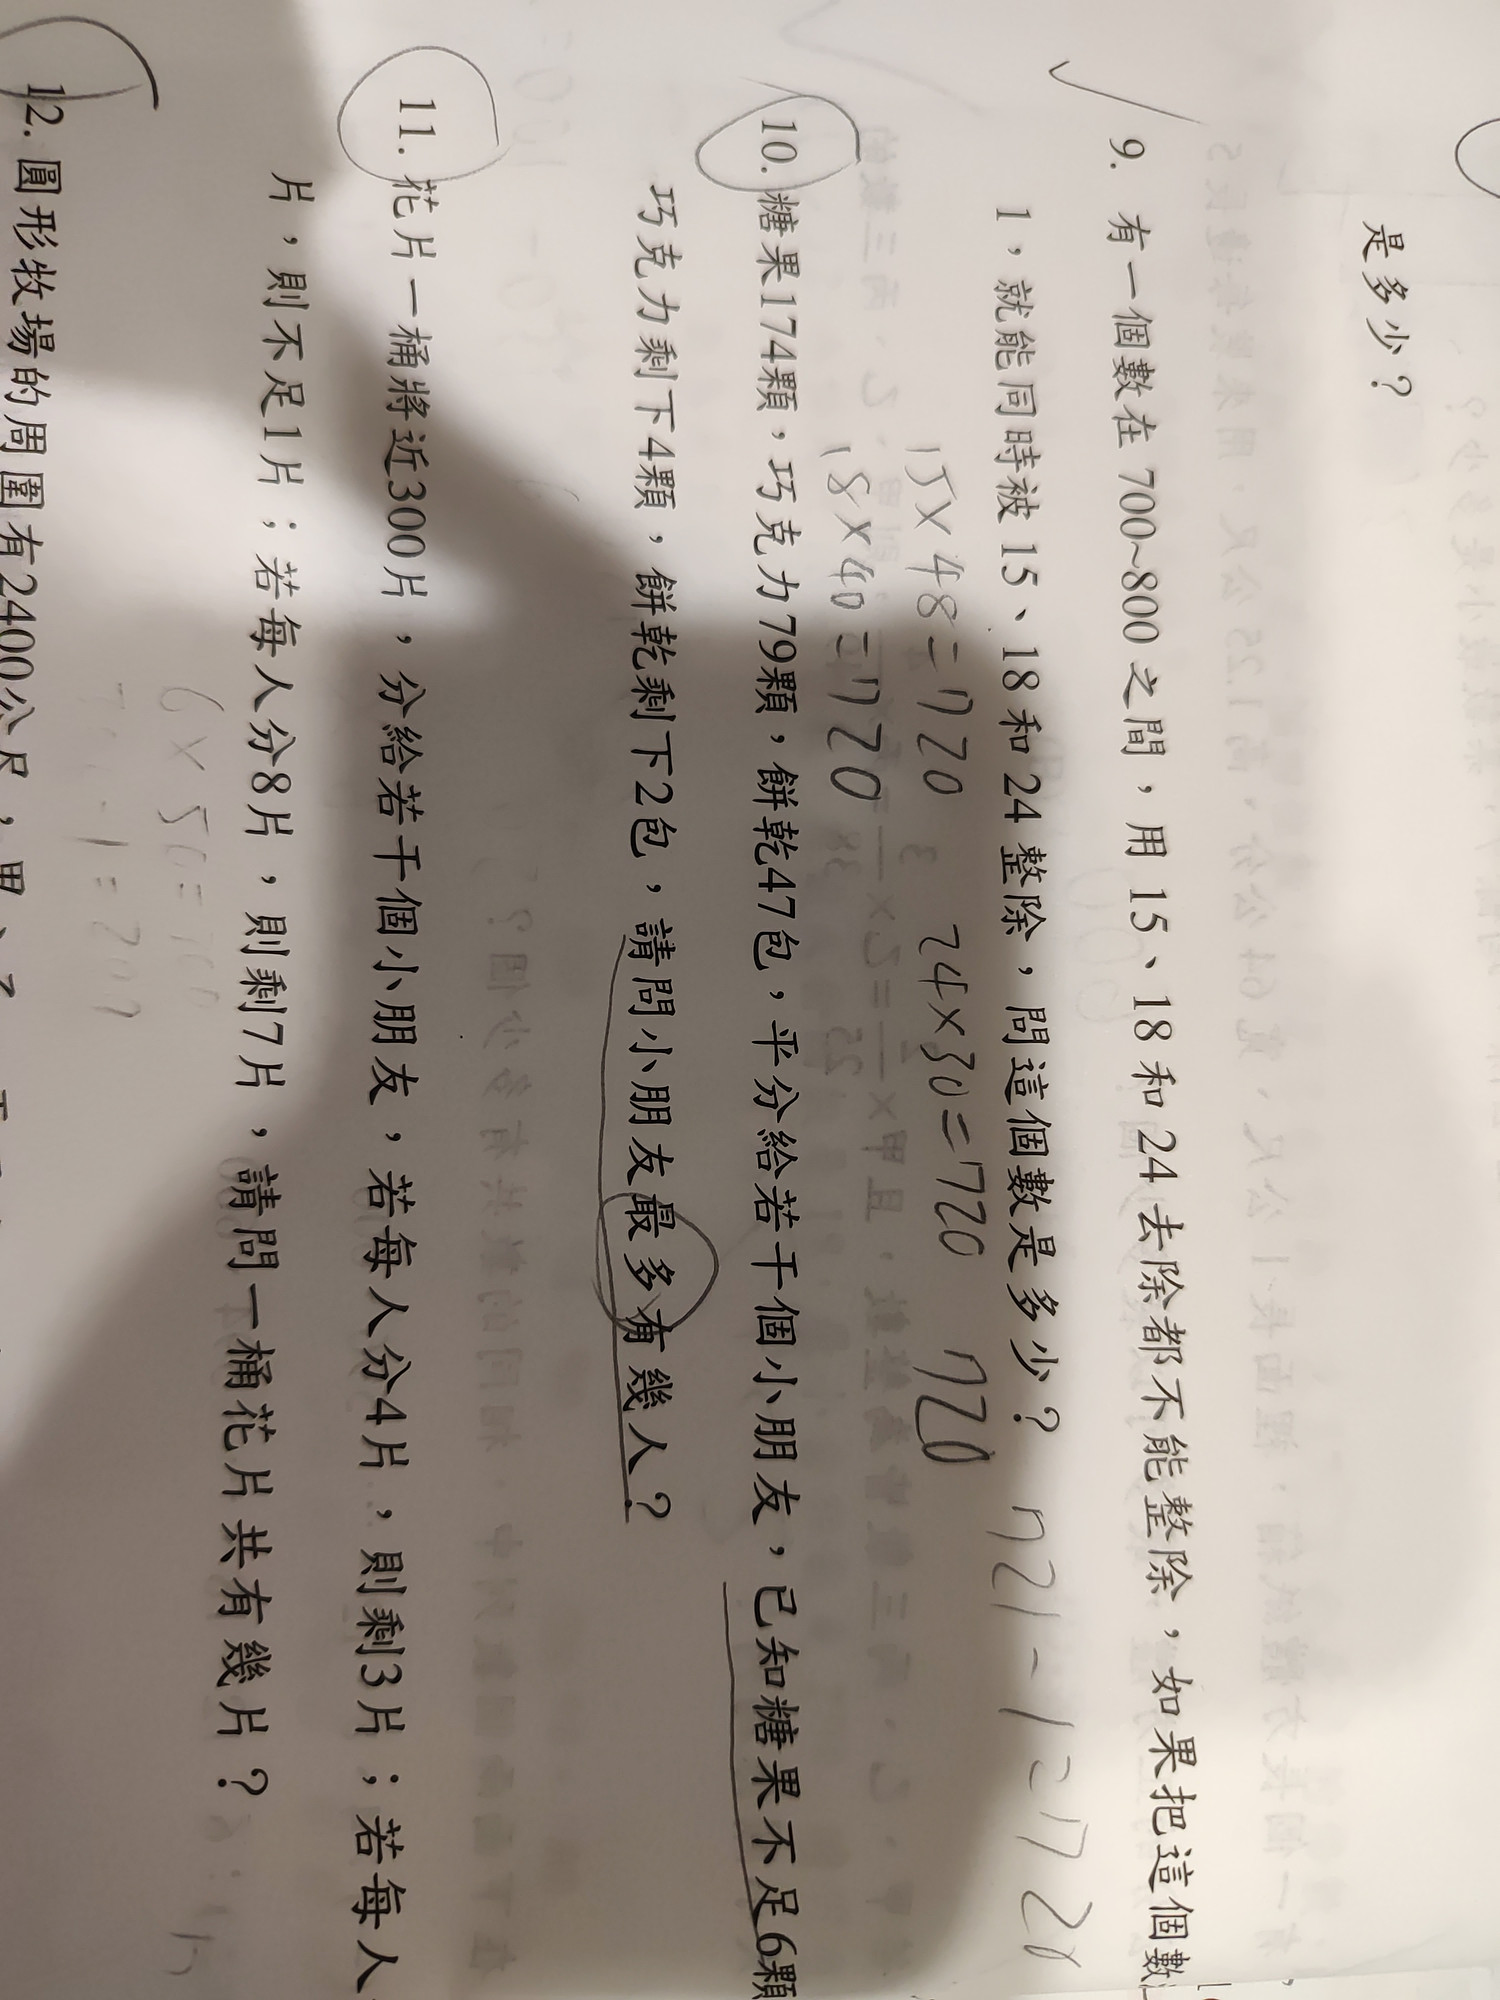 是多少？
9. 有一個數在 700~800 之間，用 15、18 和 24 去除都不能整除，如果把這個數
1，就能同時被 15、18 和 24 整除，問這個數是多少？ 721-1=720
15×48=720 24×30=720 720
18×40=720
10. 糖果174顆，巧克力79顆，餅乾47包，平分給若干個小朋友，已知糖果不足6顆
巧克力剩下4顆，餅乾剩下2包，請問小朋友最多有幾人？
11. 花片一桶將近300片，分給若干個小朋友，若每人分4片，則剩3片；若每人
片，則不足1片；若每人分8片，則剩7片，請問一桶花片共有幾片？
6×50=
12. 圓形牧場的周圍有2400公尺，甲、乙